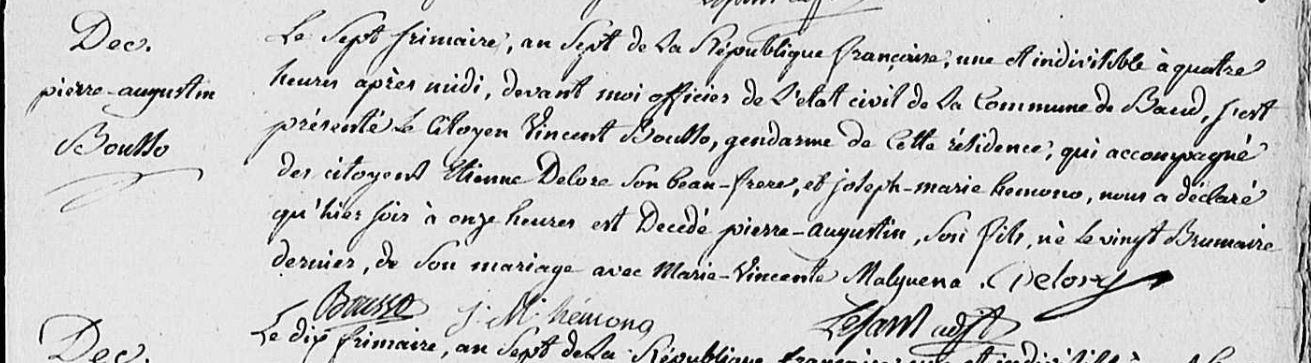 Dec.
pierre-augustin
Boullo
Le sept frimaire, an sept de la République française, une et indivisible à quatre
heures après midi, devant moi officier de l'état civil de la Commune de Baud, s'est
présenté le Citoyen Vincent Boullo, gendarme de cette résidence, qui accompagné
des citoyens Etienne Delore son beau-frere, et joseph-marie hemono, nous a déclaré
qu'hier soir à onze heures est Decedé pierre-augustin, son fils, né le vingt Brumaire
dernier, de son mariage avec Marie-Vincente Malquena. Delore
J. M. hémono
Dec.
Le dix frimaire, an sept de la République française une et indivisible à